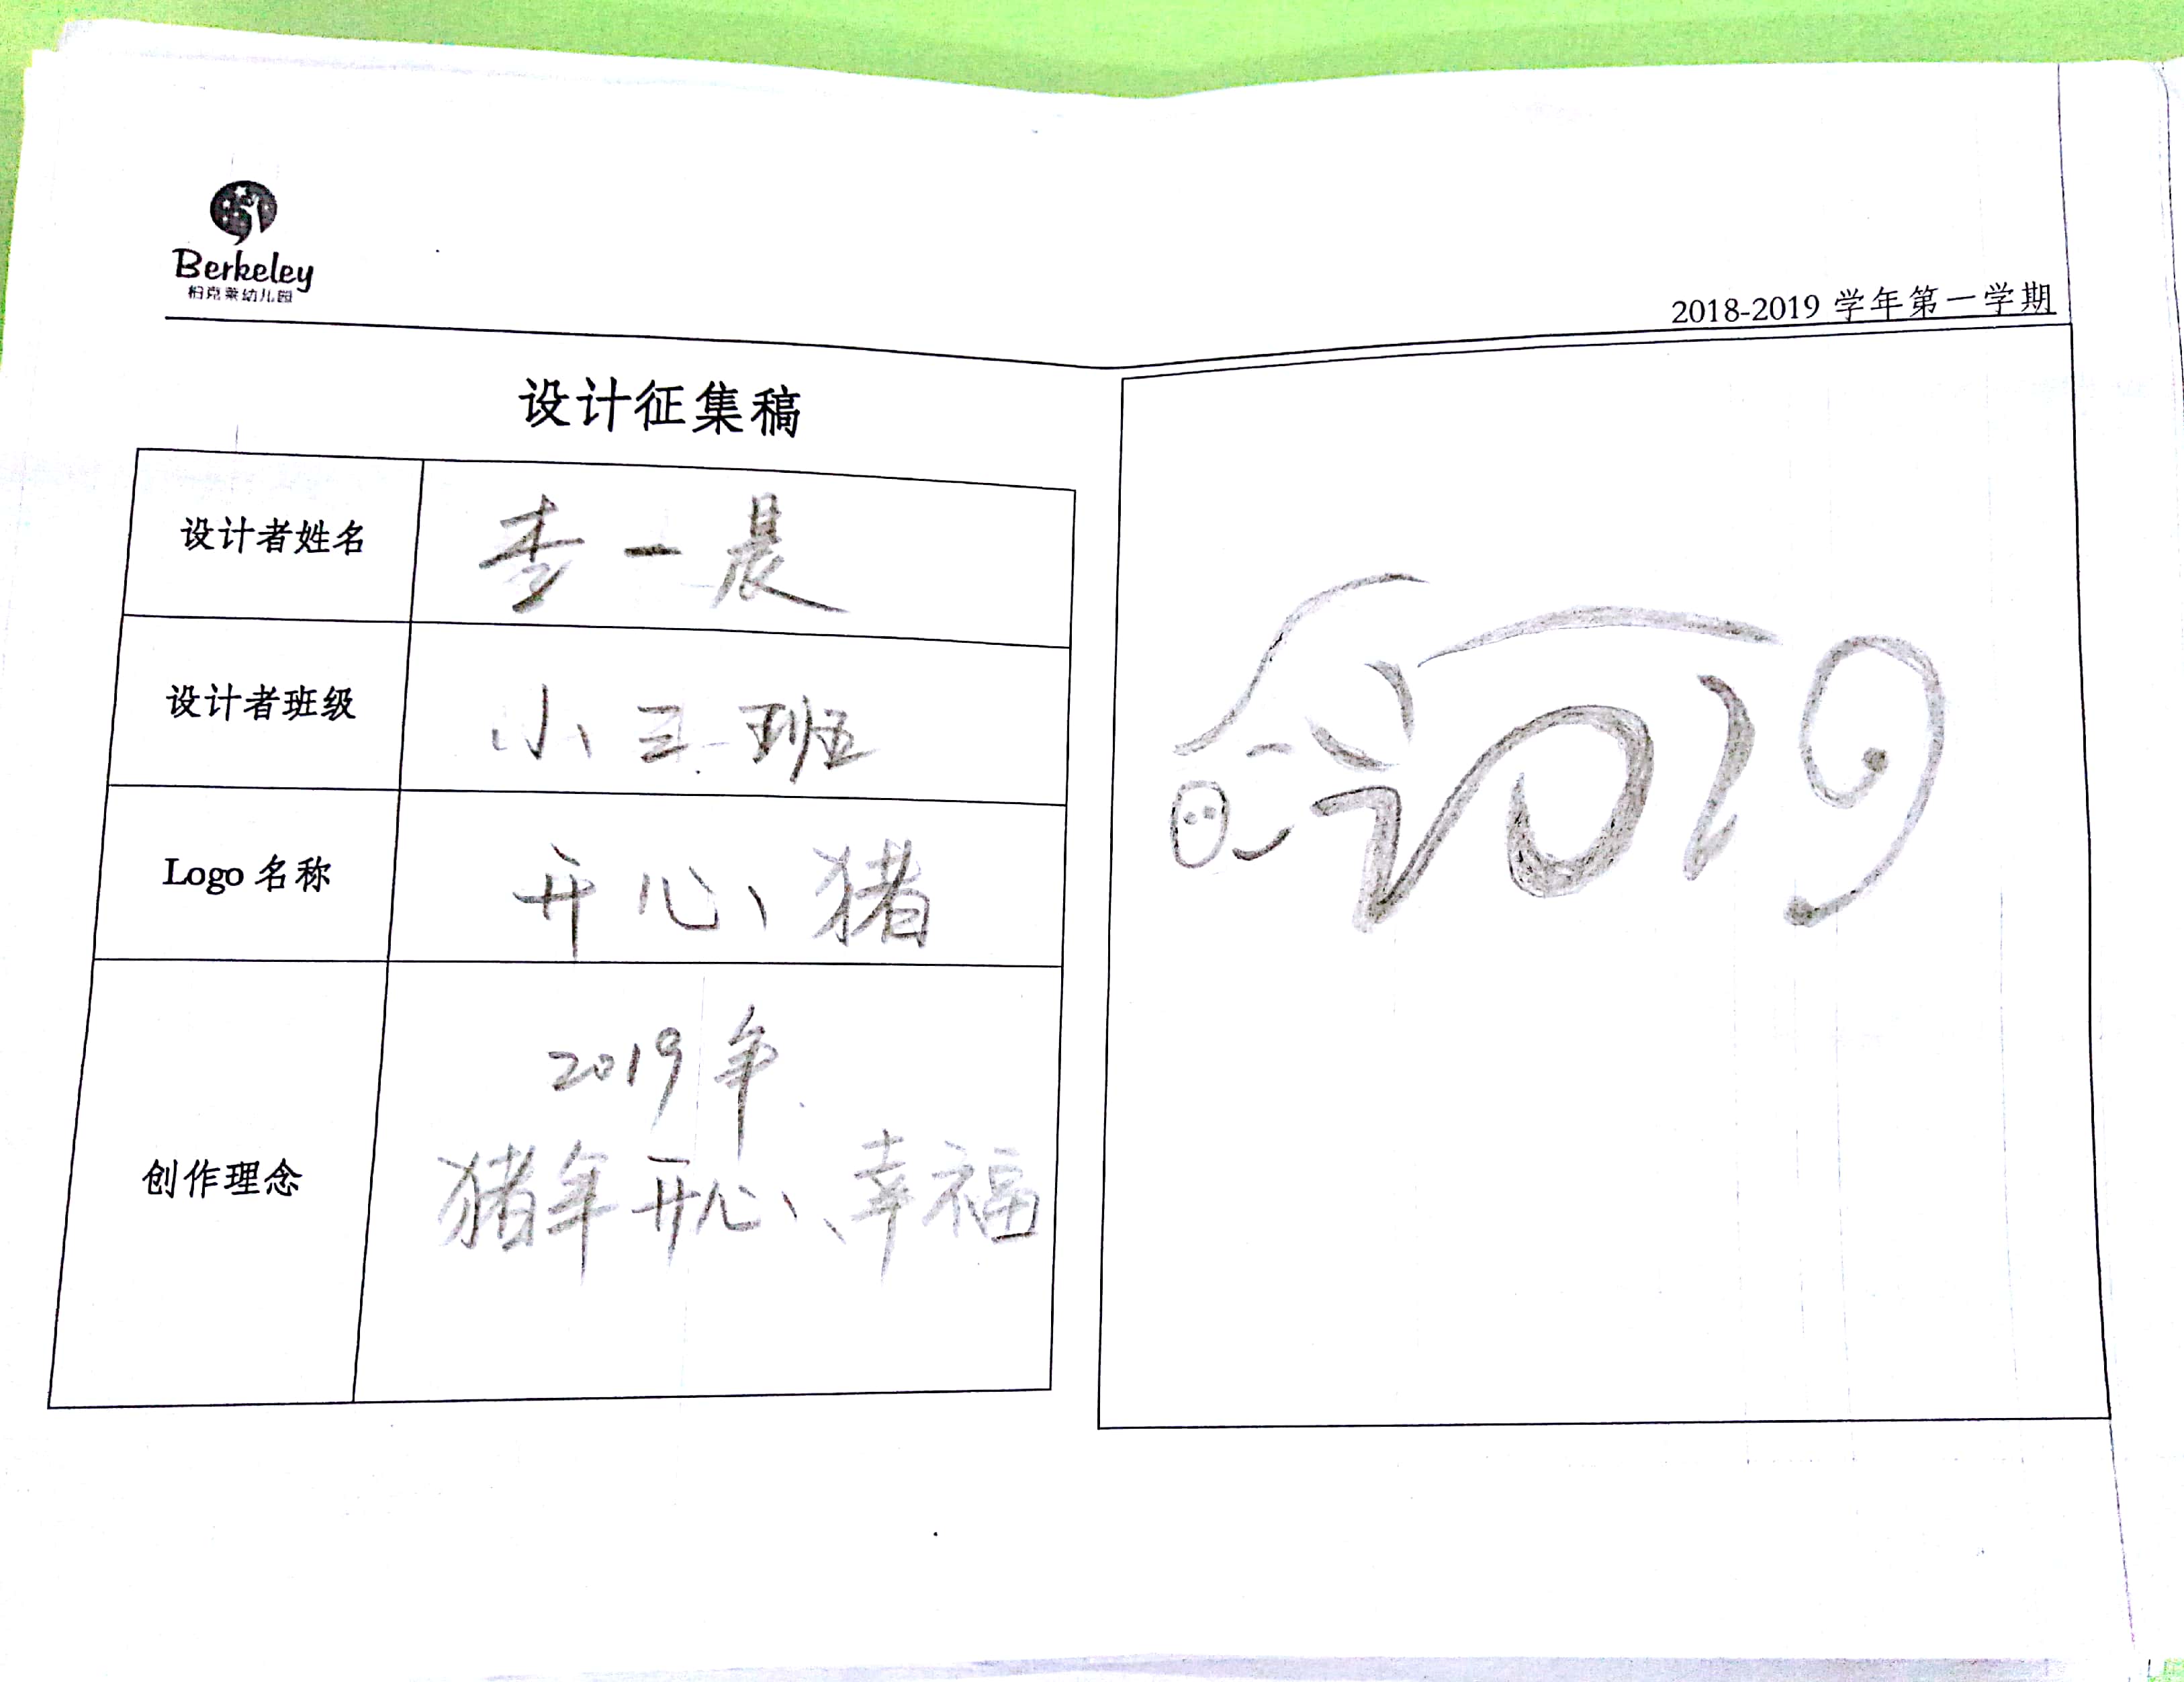 Berkeley
柏克莱幼儿园
2018-2019 学年第一学期
设计征集稿
设计者姓名
李一晨
设计者班级
小三班
Logo 名称
开心猪
创作理念
2019年
猪年开心、幸福
2019